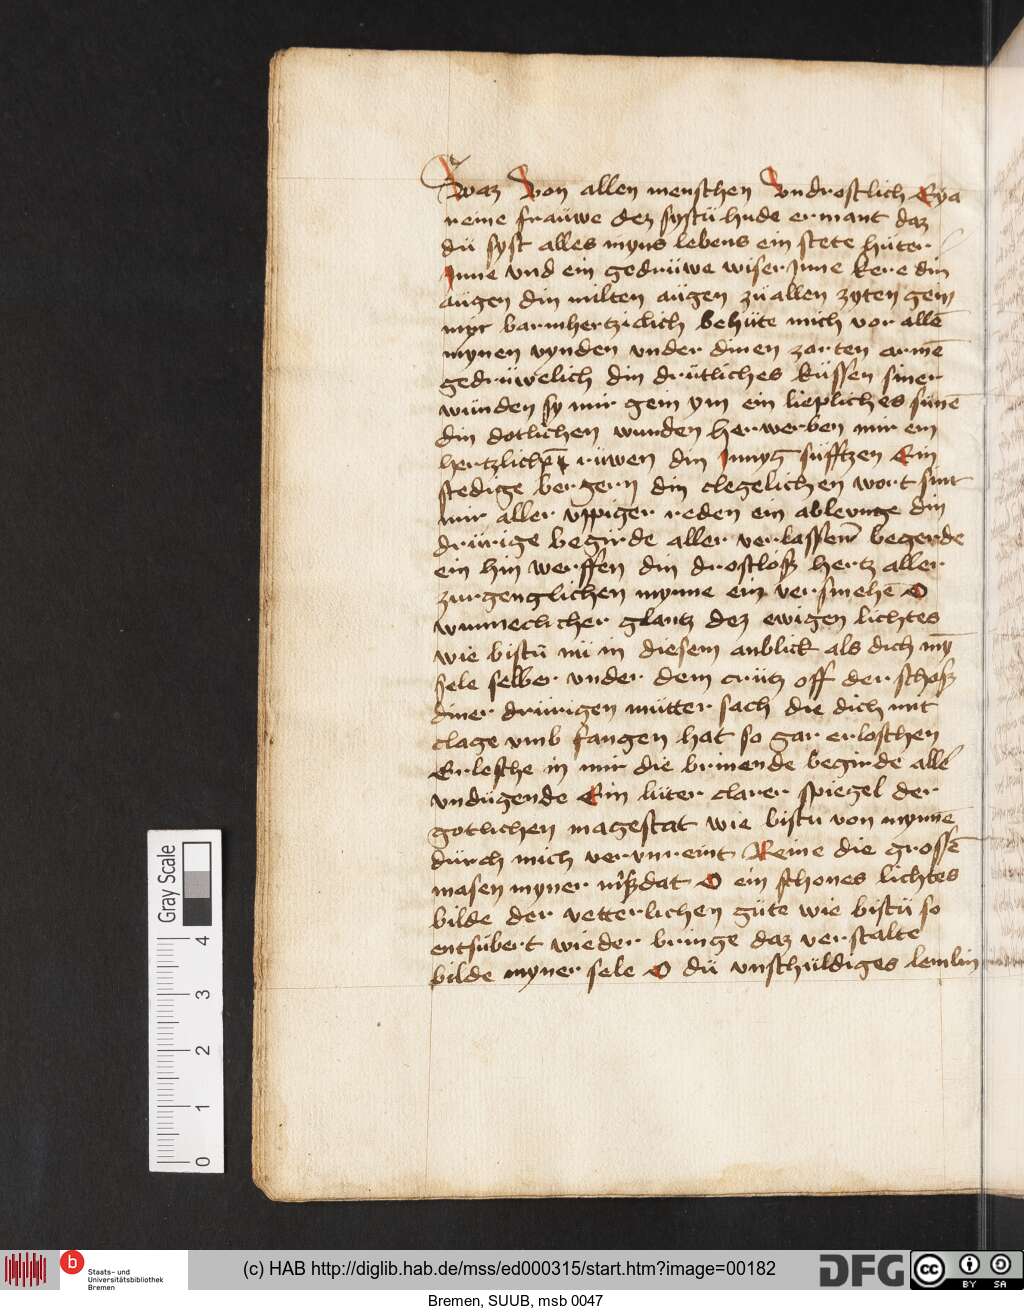 waz von allen menschen vndrostlich Eya
reine frauwe dez systu hude ermant daz
du syst alles myns lebens ein stete huter
Jnne vnd ein gedruwe wiser Jnne kere din
augen din milten augen zu allen zyten gein
myr barmhertziclich behute mich vor allē
mynen vynden vnder dinen zarten armē
gedruwelich din drutliches kussen siner
wunden sy mir gein ym ein liepliches sune
din dotlichen wunden herwerben mir ein
hertzlichen ruwen din Jnnyg sufftzen Ein
stedige bergern din clegelichen wort sint
mir aller vppiger reden ein ablegunge din
drurige begirde aller verlassenn begerde
ein hin werffen din drostloß hertz aller
zurgenglichen mynne ein versmehē O
wunneclicher glantz dez ewigen lichtes
wie bistu nu in diesem anblick als dich my
sele selber vnder dem crutz off der schoß
diner drurigen mutter sach die dich mit
clage vmb fangen hat so gar erloschen
Erlesche in mir die brinende begirde allē
vndugende Ein luter clarer spiegel der
gotlichen magestat wie bistu von mynnē
durch mich vervnreint Reine die grossē
masen myner mißdat O ein schones lichtes
bilde der vetterlichen gute wie bistu so
entsubert wieder bringe daz verstalte
bilde myner sele O du vnschuldiges lemlin
Gray Scale
4
3
2
1
0
b
Staats- und
Universitätsbibliothek
Bremen
(c) HAB http://diglib.hab.de/mss/ed000315/start.htm?image=00182
DFG
cc BY SA
Bremen, SUUB, msb 0047